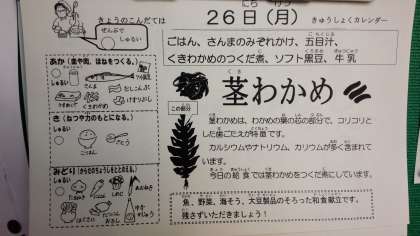 きょうのこんだては
ぜんぶで
しゅるい
26日(月)
きゅうしょくカレンダー
ごはん、さんまのみぞれかけ、五目汁、
くきわかめのつくだ煮、ソフト黒豆、牛乳
あか(血や肉、ほねをつくる。)
しゅるい
さんま
だしこんぶ
くきわかめ
けずりぶし
き(ねつや力のもとになる。)
しゅるい
ごはん
さとう
みどり(からだのちょうしをととのえる。)
しゅるい
だいこん
にんじん
はくさい
茎わかめ
この部分
茎わかめは、わかめの葉の芯の部分で、コリコリと
した歯ごたえが特徴です。
カルシウムやナトリウム、カリウムが多く含まれて
います。
今日の給食では茎わかめをつくだ煮にしています。
魚、野菜、海そう、大豆製品のそろった和食献立です。
残さずいただきましょう!